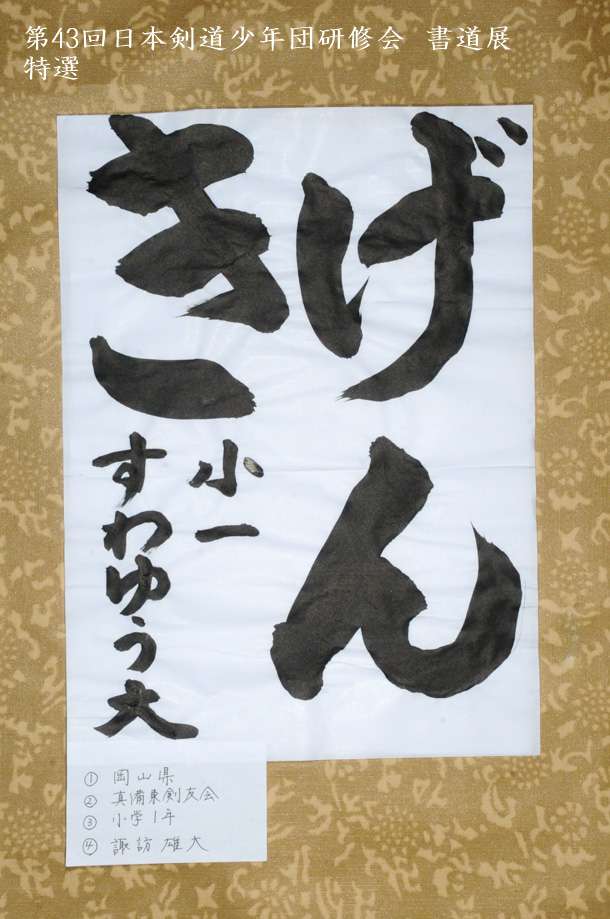 第43回日本剣道少年団研修会 書道展
特選
げん
き
小一
すわゆう大
① 岡山県
② 真備東剣友会
③ 小学1年
④ 諏訪 雄大